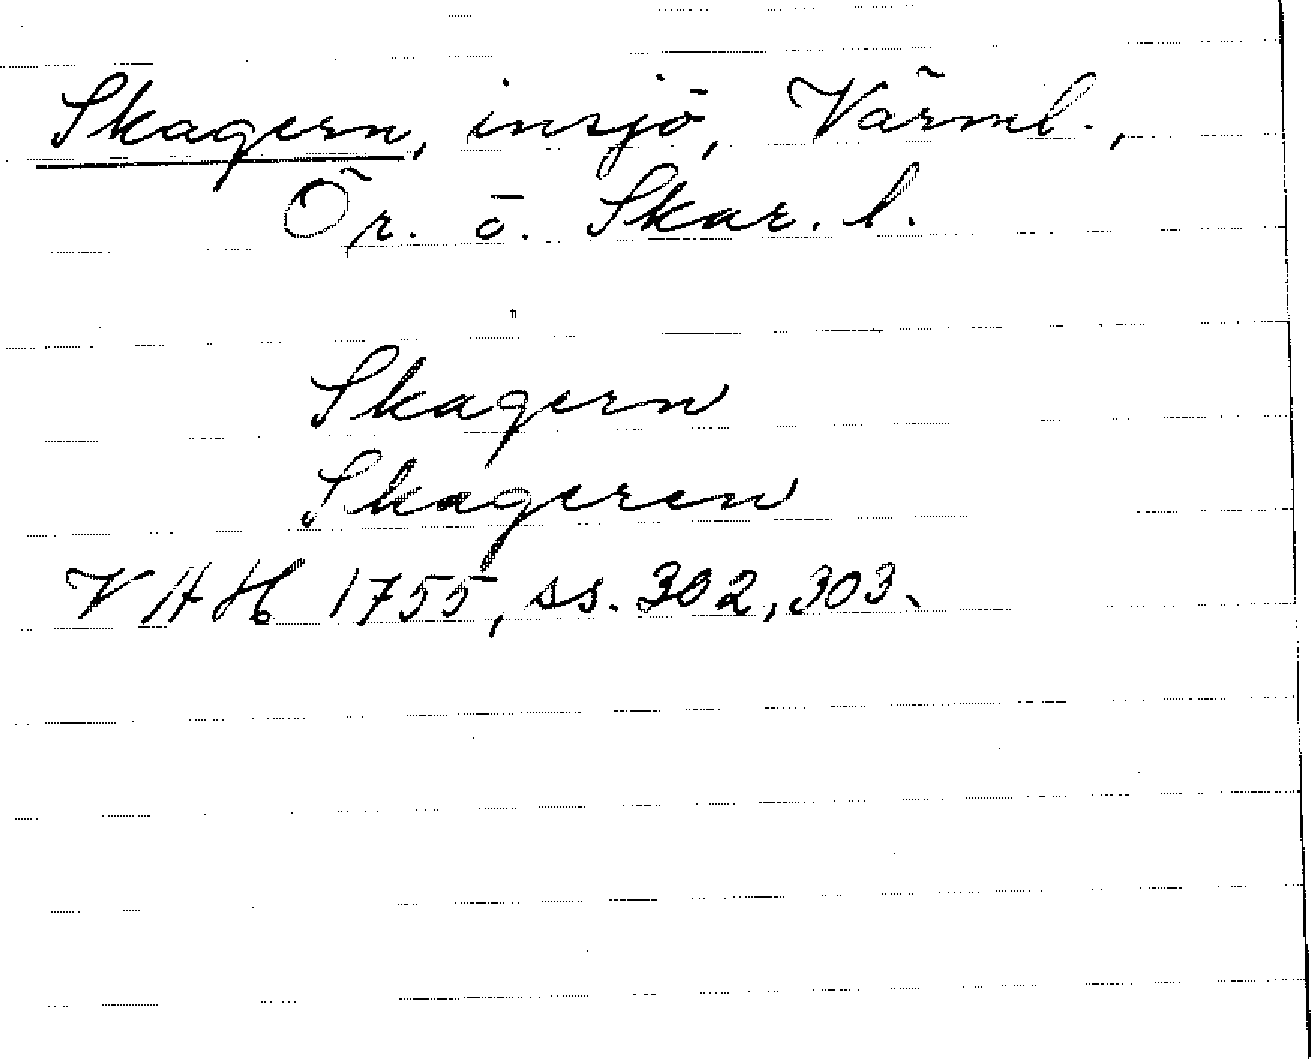 Skagern, insjö, Värml.,
Ör. o. Skar. l.
Skagern
Skageren
VAH 1755, ss. 302, 303.